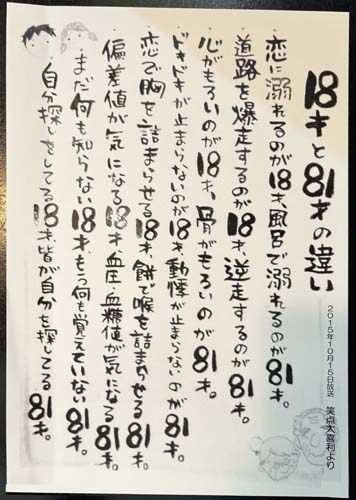 18才と81才の違い
2015年10月15日放送　笑点大喜利より
・恋に溺れるのが18才、風呂で溺れるのが81才。
・道路を爆走するのが18才、逆走するのが81才。
・心がもろいのが18才、骨がもろいのが81才。
・ドキドキが止まらないのが18才、動悸が止まらないのが81才。
・恋で胸を詰まらせる18才、餅で喉を詰まらせる81才。
・偏差値が気になる18才、血圧・血糖値が気になる81才。
・まだ何も知らない18才、もう何も覚えていない81才。
・自分探しをしてる18才、皆が自分を探してる81才。